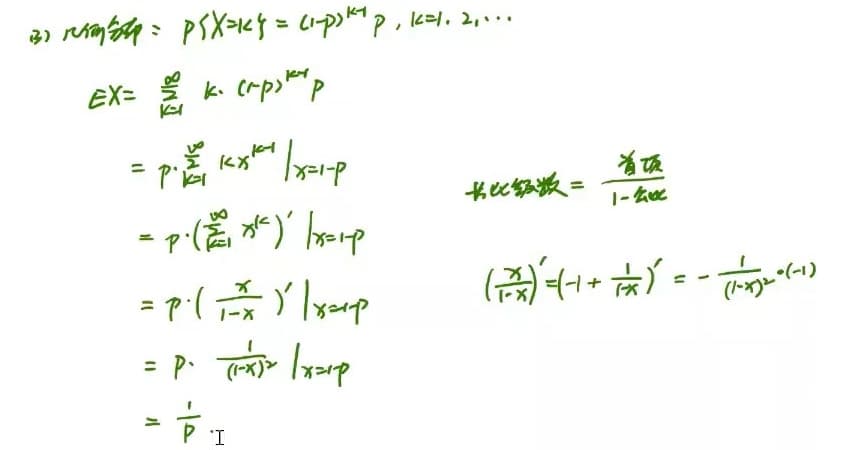 (3) 几何分布: P{X=k} = (1-p)^{k-1} p, k=1, 2, ...
EX = ∑_{k=1}^{∞} k·(1-p)^{k-1} p
= p·∑_{k=1}^{∞} kx^{k-1} |_{x=1-p}
= p·(∑_{k=1}^{∞} x^k)' |_{x=1-p}
= p·(x/(1-x))' |_{x=1-p}
= p·1/(1-x)² |_{x=1-p}
= 1/p.
等比级数 = 首项/(1-公比)
(x/(1-x))' = (-1 + 1/(1-x))' = -1/(1-x)²·(-1)